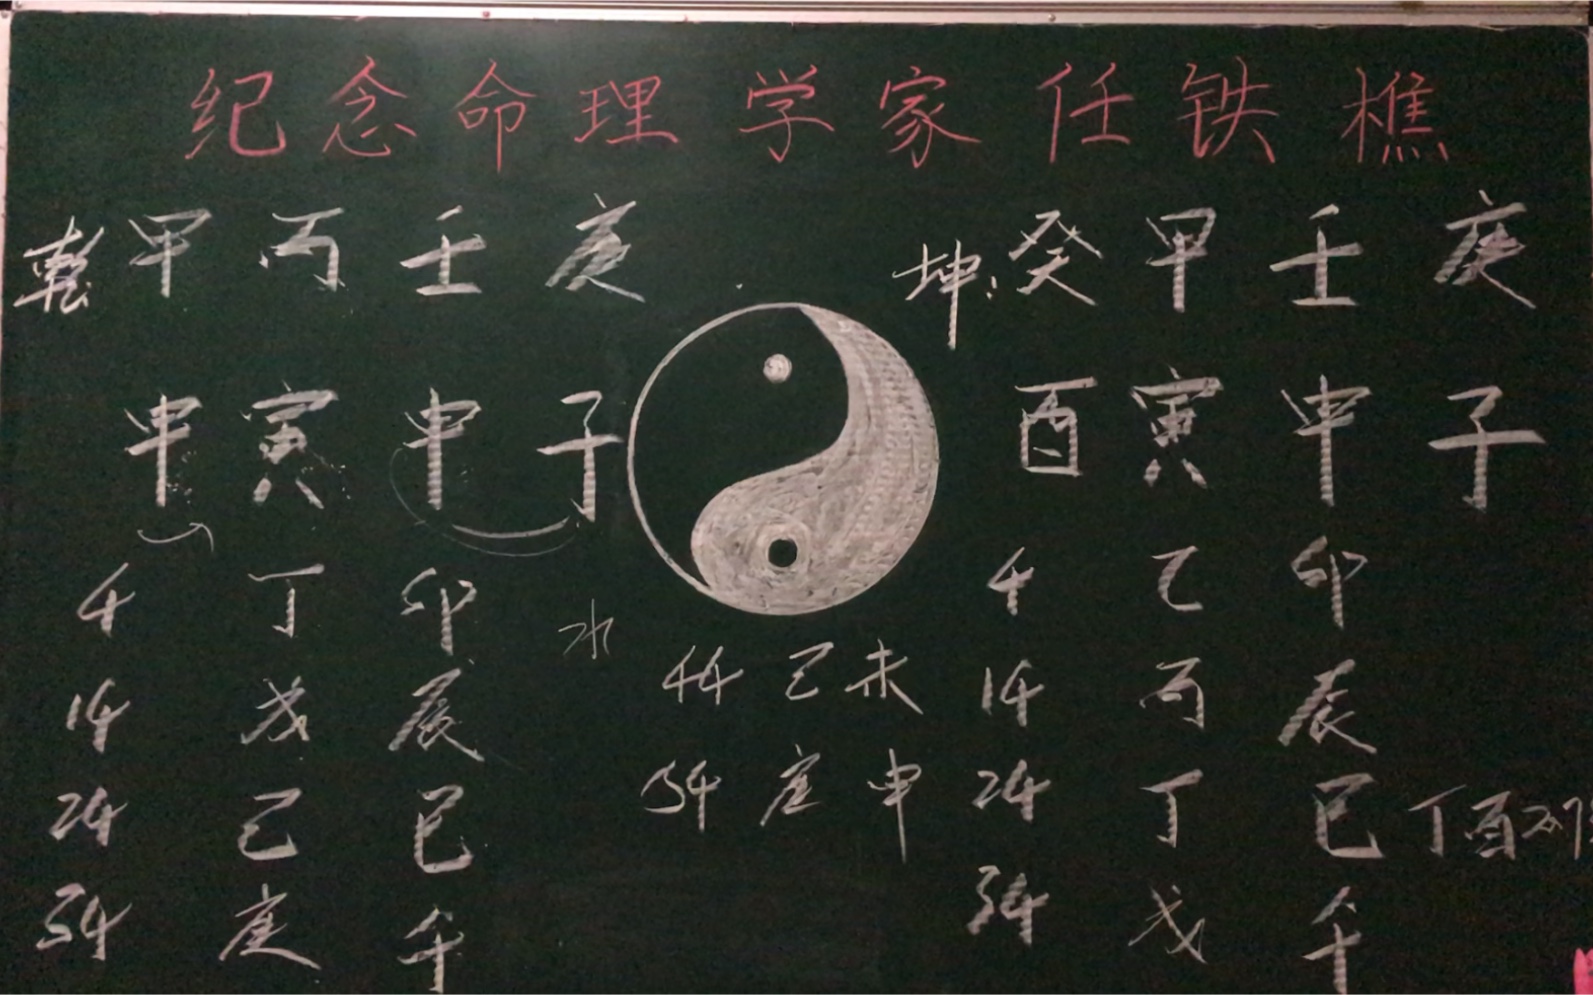 纪念命理学家任铁樵
乾 甲 丙 壬 庚
申 寅 申 子
4 丁 卯
14 戊 辰
24 己 巳
34 庚 午
水
44 己未
54 庚申
坤: 癸 甲 壬 庚
酉 寅 申 子
4 乙 卯
14 丙 辰
24 丁 巳 丁酉
34 戊 午